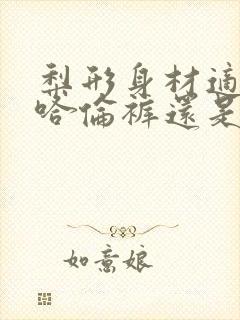 梨形身材適
哈倫褲還是
如意娘